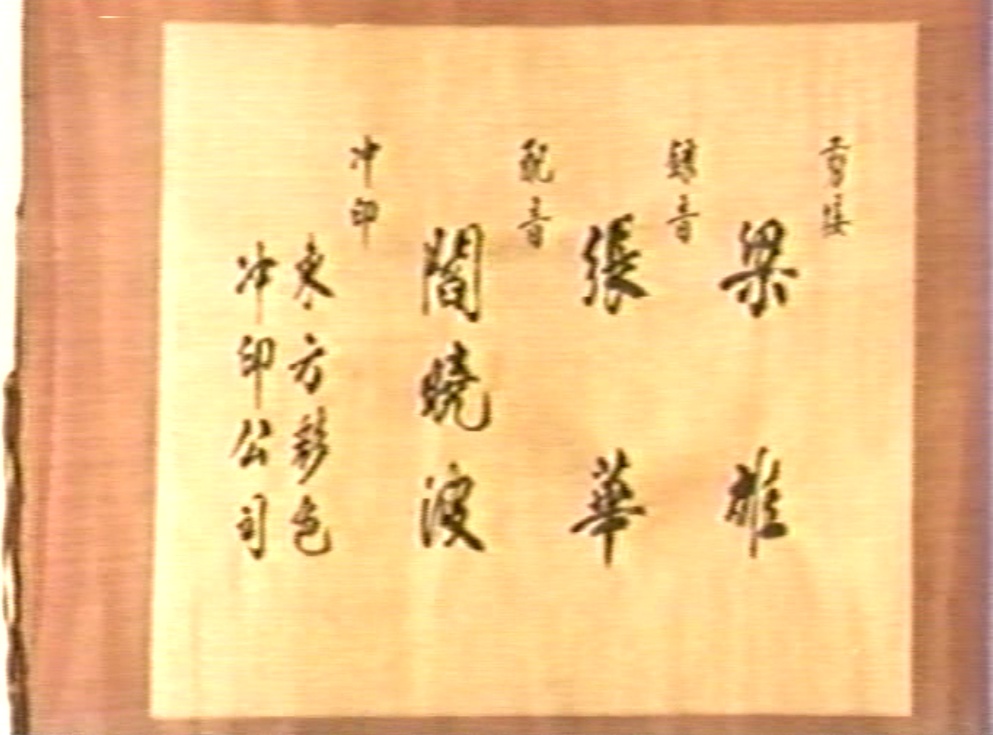 剪接
梁雄
錄音
張華
配音
閻曉波
冲印
東方彩色
冲印公司